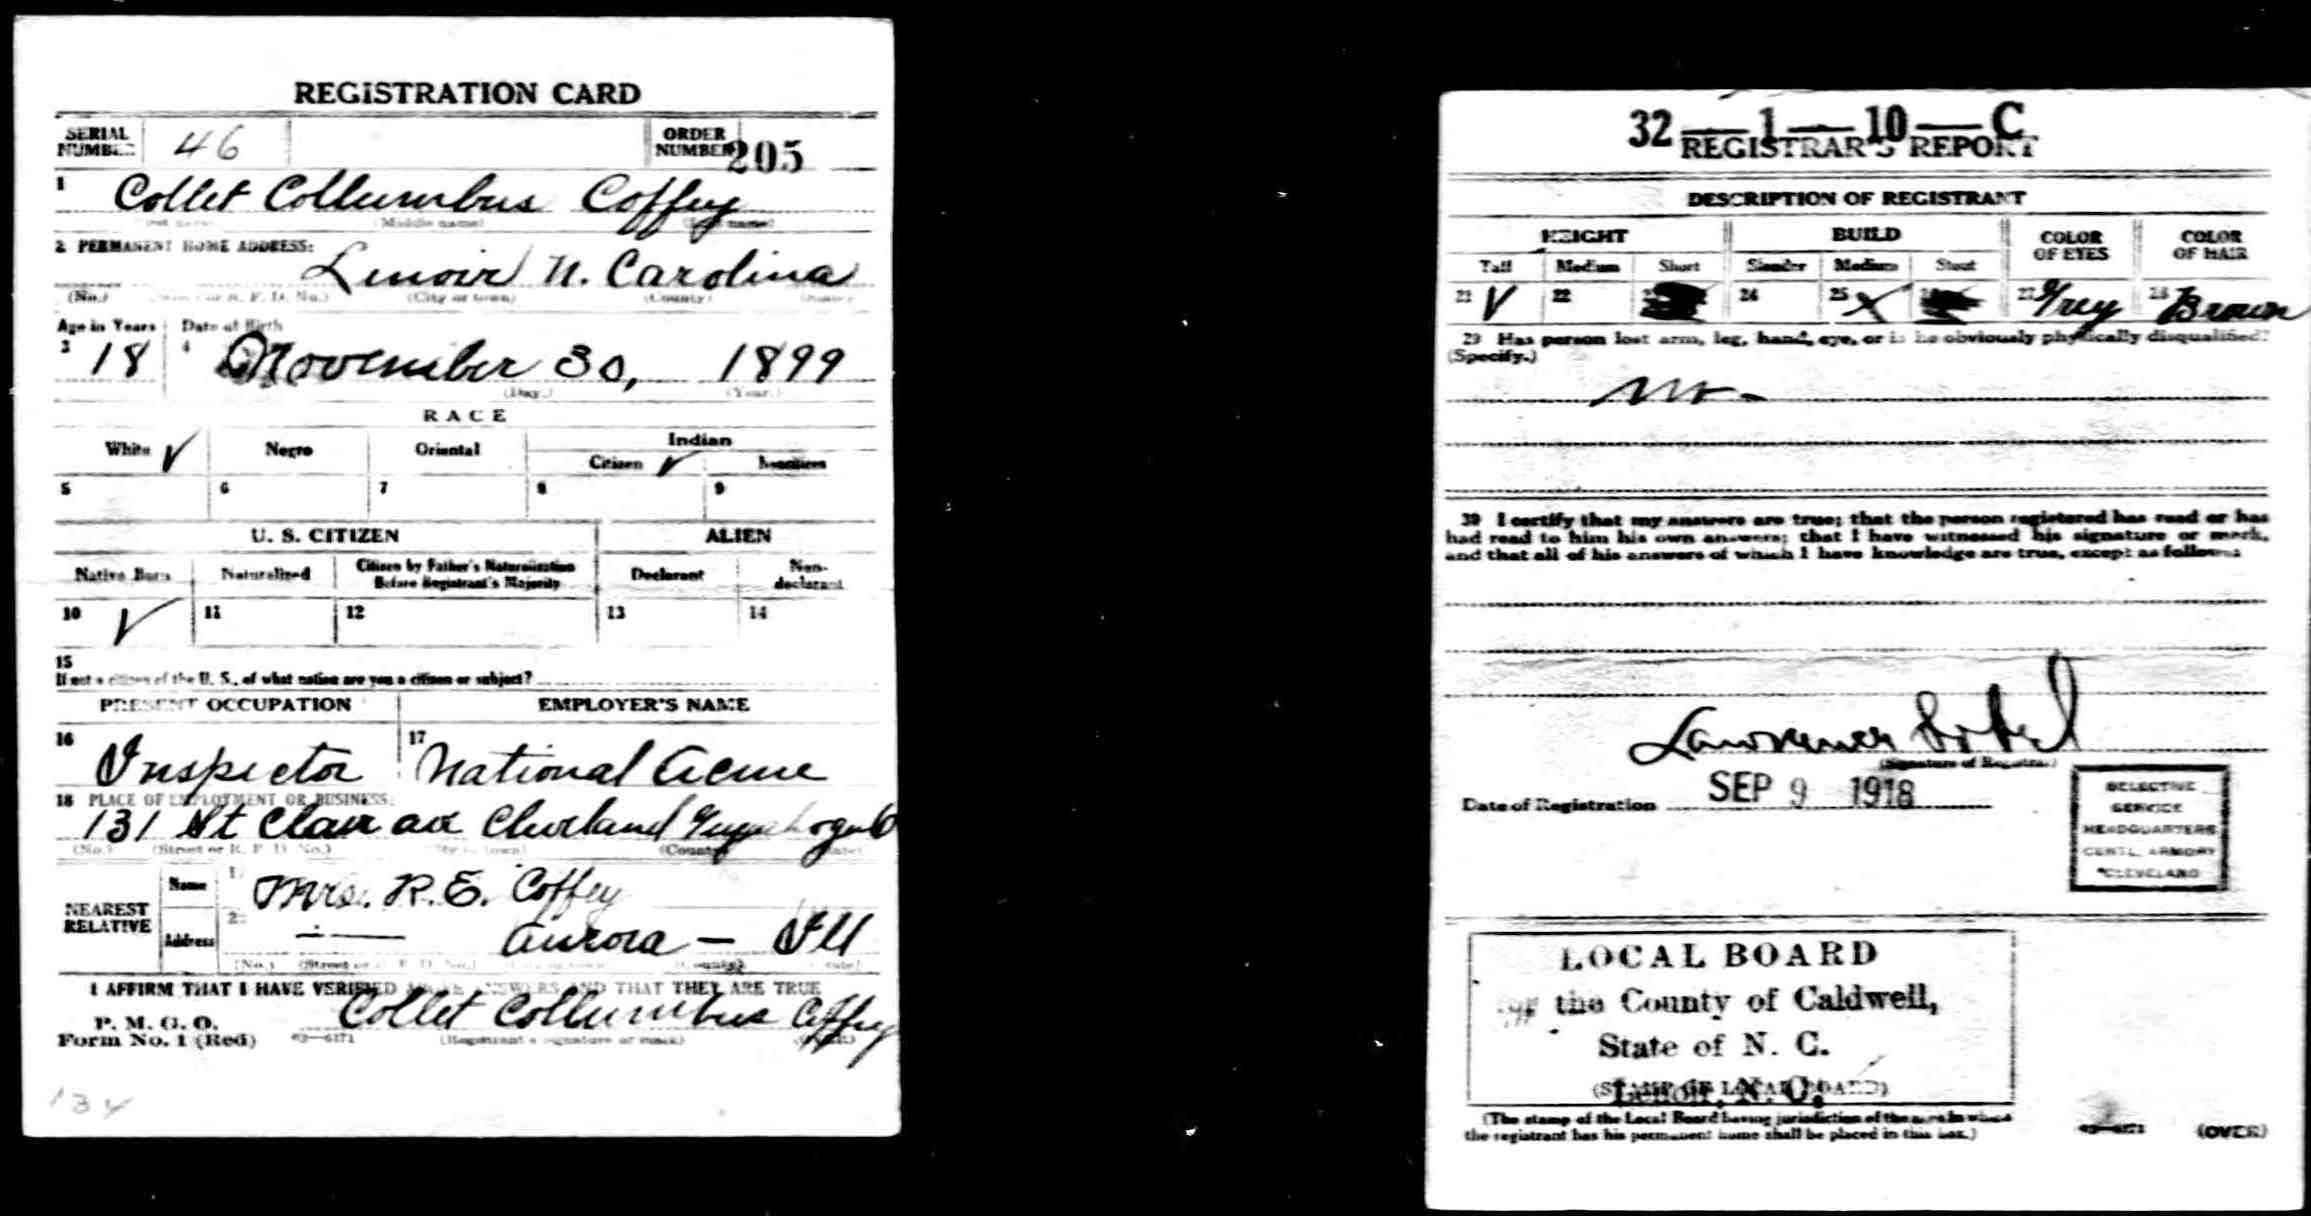 REGISTRATION CARD
SERIAL NUMBER 46 ORDER NUMBER 205
1 Collet Collumbus Coffey
(Middle name)
2 PERMANENT HOME ADDRESS:
Lenoir N. Carolina
(No.) (City or town) (County)
Age in Years Date of Birth
3 18 4 November 30, 1899
(Day.) (Year.)
RACE
White ✓ Negro Oriental Indian
Citizen ✓
5 6 7 8 9
U. S. CITIZEN ALIEN
Native Born Naturalized Citizen by Father's Naturalization Before Registrant's Majority Declarant Non-declarant
10 ✓ 11 12 13 14
15
If not a citizen of the U. S., of what nation are you a citizen or subject?
PRESENT OCCUPATION EMPLOYER'S NAME
16 Inspector 17 National Acme
18 PLACE OF EMPLOYMENT OR BUSINESS:
131 St Clair ave Cleveland
(No.) (Street or R. F. D. No.) (County)
NEAREST RELATIVE
Name 1 Mrs. R. E. Coffey
Address 2 Aurora — Ill
(No.)
I AFFIRM THAT I HAVE VERIFIED ABOVE ANSWERS AND THAT THEY ARE TRUE
P. M. G. O.
Form No. 1 (Red)
Collet Collumbus Coffey
(Registrant's signature or mark)
32—1—10—C
REGISTRAR'S REPORT
DESCRIPTION OF REGISTRANT
HEIGHT BUILD COLOR OF EYES COLOR OF HAIR
Tall Medium Short Slender Medium Stout
21 ✓ 22 24 25 X 27 Grey 28 Brown
29 Has person lost arm, leg, hand, eye, or is he obviously physically disqualified?
(Specify.)
no -
30 I certify that my answers are true; that the person registered has read or has
had read to him his own answers; that I have witnessed his signature or mark,
and that all of his answers of which I have knowledge are true, except as follows:
Lawrence
(Signature of Registrar)
Date of Registration SEP 9 1918
SELECTIVE
SERVICE
HEADQUARTERS
CENTL. ARMORY
CLEVELAND
LOCAL BOARD
the County of Caldwell,
State of N. C.
(STAMP OF LOCAL BOARD)
Lenoir, N. C.
(The stamp of the Local Board having jurisdiction of the area in which
the registrant has his permanent home shall be placed in this box.)
(OVER)